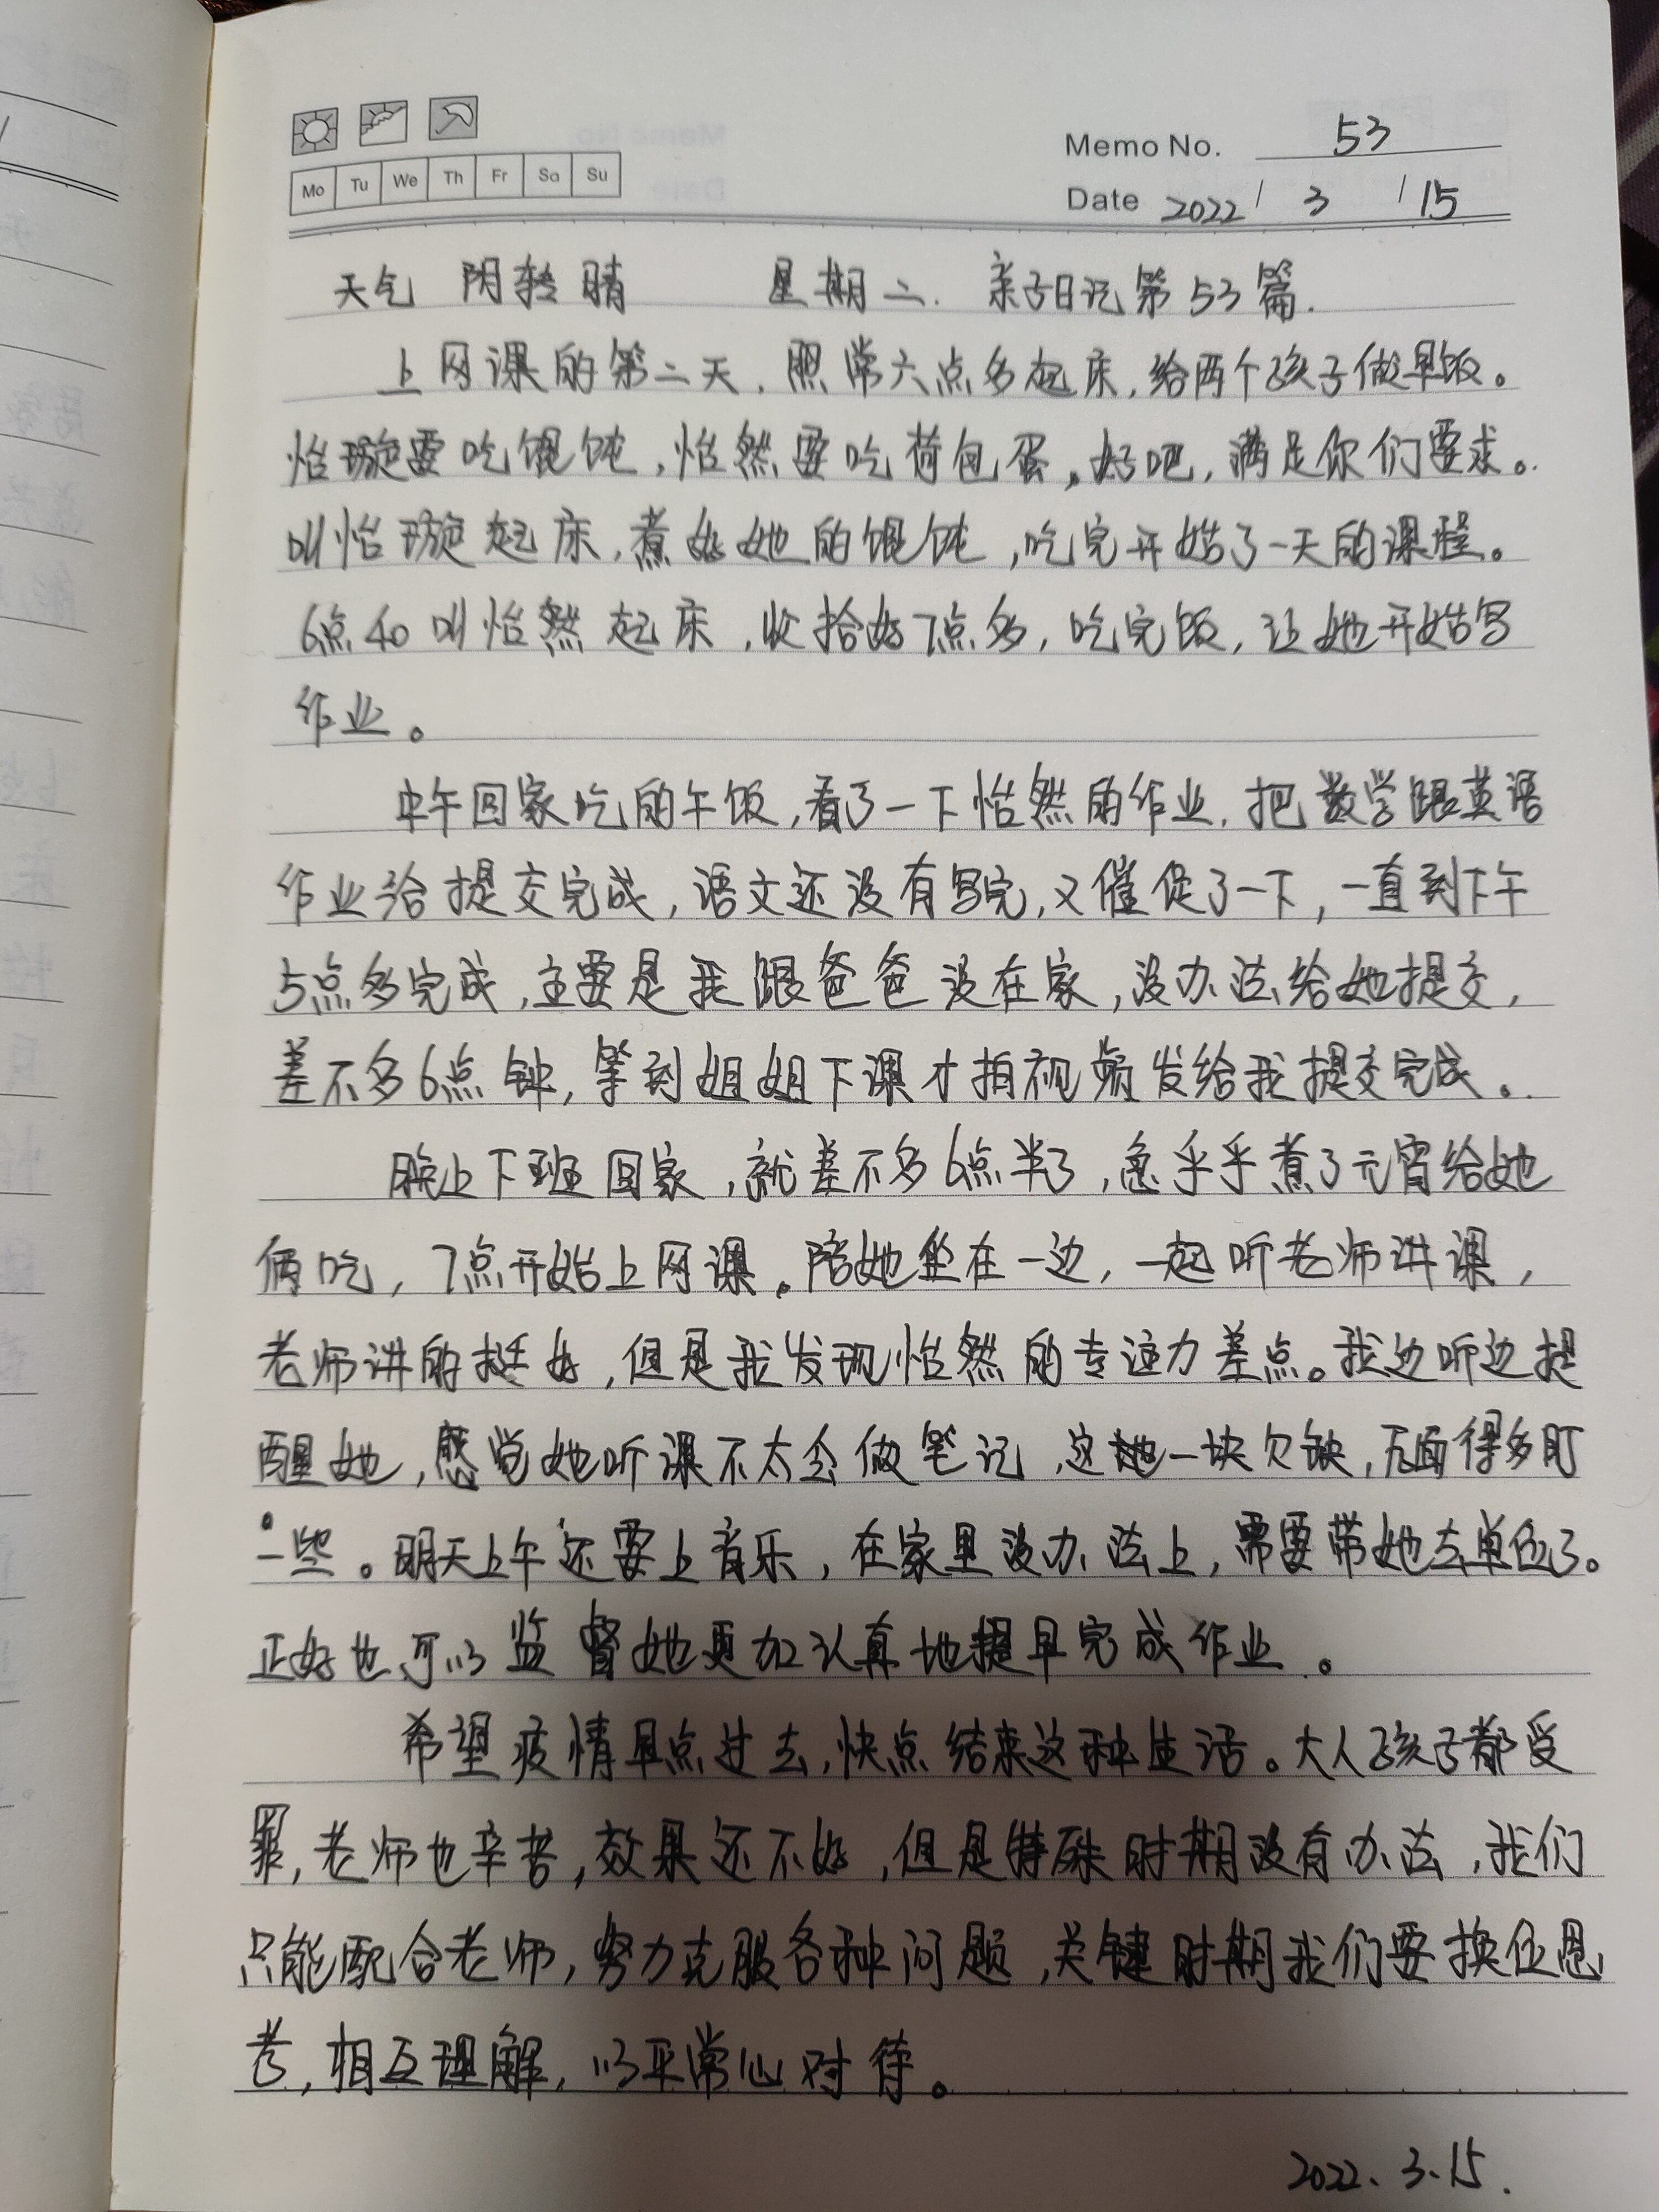 Memo No. 53
Mo Tu We Th Fr Sa Su
Date 2022 / 3 / 15
天气 阴转晴 星期二. 亲子日记第53篇.
上网课的第二天，照常六点多起床，给两个孩子做早饭。
怡璇要吃馄饨，怡然要吃荷包蛋。好吧，满足你们要求。
叫怡璇起床，煮好她的馄饨，吃完开始了一天的课程。
6点40叫怡然起床，收拾好7点多，吃完饭，让她开始写
作业。
中午回家吃的午饭，看了一下怡然的作业，把数学跟英语
作业给提交完成，语文还没有写完，又催促了一下，一直到下午
5点多完成，主要是我跟爸爸没在家，没办法给她提交，
差不多6点钟，等到姐姐下课才拍视频发给我提交完成。
晚上下班回家，就差不多6点半了，急乎乎煮了元宵给她
俩吃，7点开始上网课。陪她坐在一边，一起听老师讲课，
老师讲的挺好，但是我发现怡然的专注力差点。我边听边提
醒她，感觉她听课不太会做笔记，这一块欠缺，后面得多盯
一些。明天上午还要上音乐，在家里没办法上，需要带她去单位了。
正好也可以监督她更加认真地提早完成作业。
希望疫情早点过去，快点结束这种生活。大人孩子都受
罪，老师也辛苦，效果还不好，但是特殊时期没有办法，我们
只能配合老师，努力克服各种问题，关键时期我们要换位思
考，相互理解，以平常心对待。
2022. 3.15.